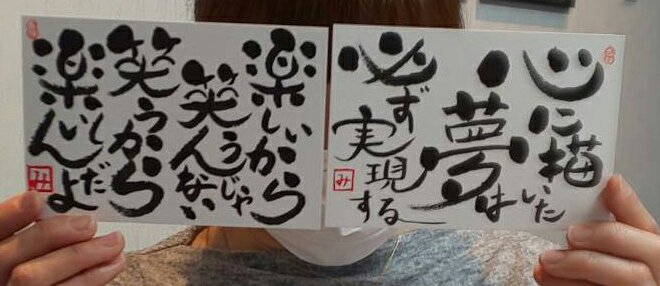 心に描いた
夢は
必ず
実現する
み
楽しいから
笑うんじゃない
笑うから
楽しいんだよ
み